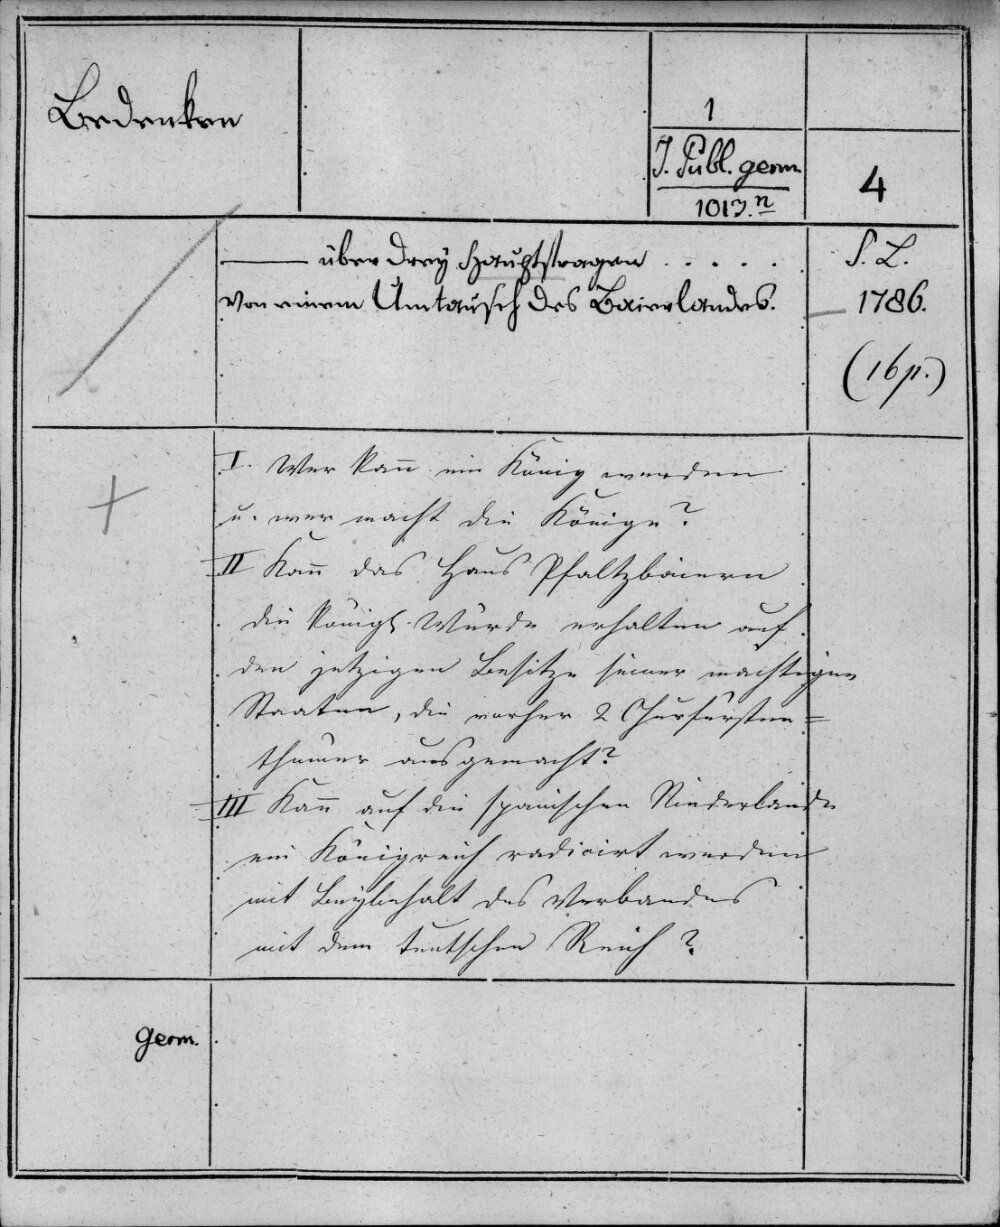 Bedenken
1
J. Publ. germ.
1013.n
4
——— über drey Hauptfragen . . . . .
von einem Umtausch des Baierlandes.
S. L.
1786.
(16 p.)
I. Wer kann ein König werden
u. wer macht die Könige?
II Kann das Haus Pfaltzbaiern
die königl. Würde erhalten auf
den jetzigen Besitze seiner mächtigen
Staaten, die vorher 2 Churfürsten=
thümer ausgemacht?
III Kann auf die spanischen Niederlande
ein Königreich radicirt werden
mit Beybehalt des Verbandes
mit dem teutschen Reich?
germ.